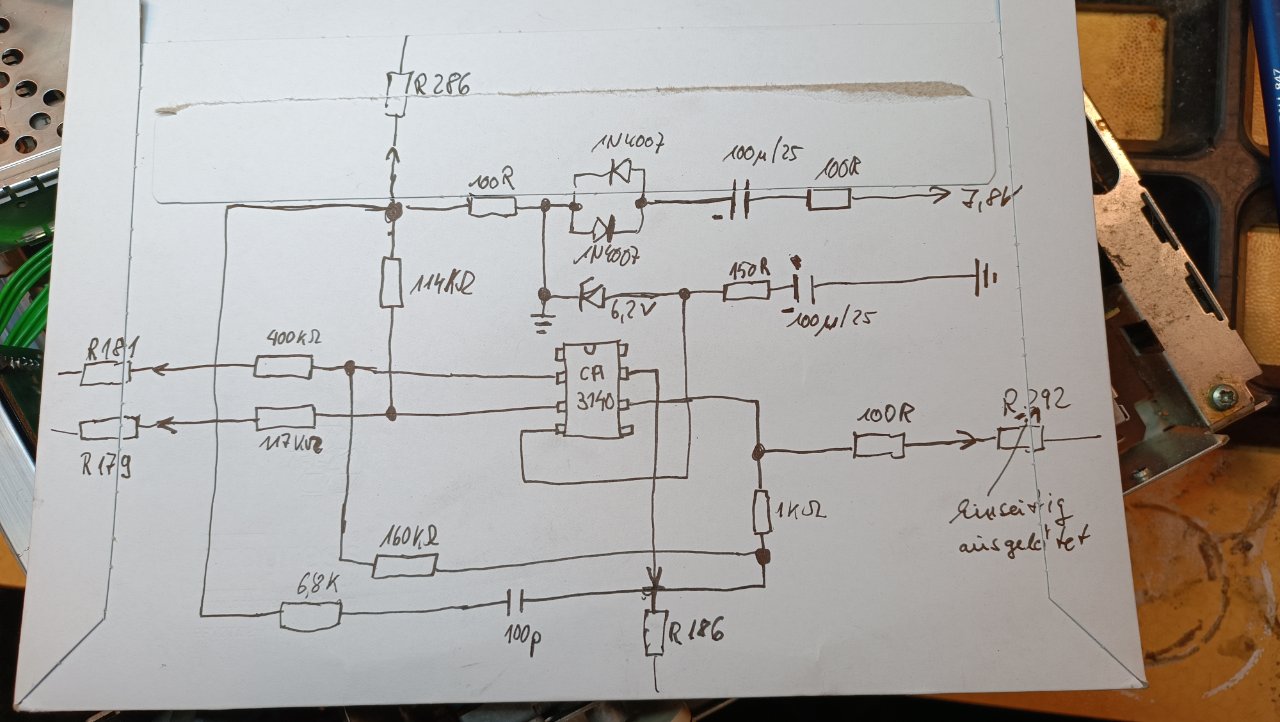 R286
1N4007
100µ/25
100R
100R
7,8V
1N4007
114KΩ
150R
6,2V
100µ/25
R181
400KΩ
CA
3140
R179
117KΩ
100R
R292
1KΩ
Einseitig
ausgelötet
160KΩ
6,8K
100p
R186